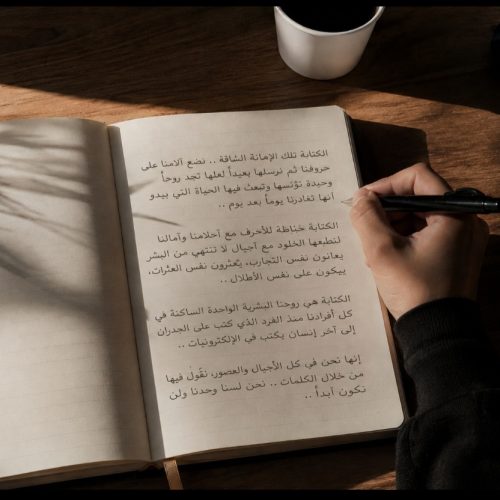 الكتابة تلك الإمانة الشاقة .. نضع آلامنا على
حروفنا ثم نرسلها بعيداً لعلها تجد روحاً
وحيدة تؤنسها وتبعث فيها الحياة التي يبدو
أنها تغادرنا يوماً بعد يوم ..
الكتابة خياطة للأحرف مع أحلامنا وآمالنا
لنطبعها الخلود مع أجيال لا تنتهي من البشر
يعانون نفس التجارب، يتعثرون نفس العثرات،
يبكون على نفس الأطلال ..
الكتابة هي روحنا البشرية الواحدة الساكنة في
كل أفرادنا منذ الفرد الذي كتب على الجدران
إلى آخر إنسان يكتب في الإلكترونيات ..
إنها نحن في كل الأجيال والعصور، نقول فيها
من خلال الكلمات .. نحن لسنا وحدنا ولن
نكون أبداً ..